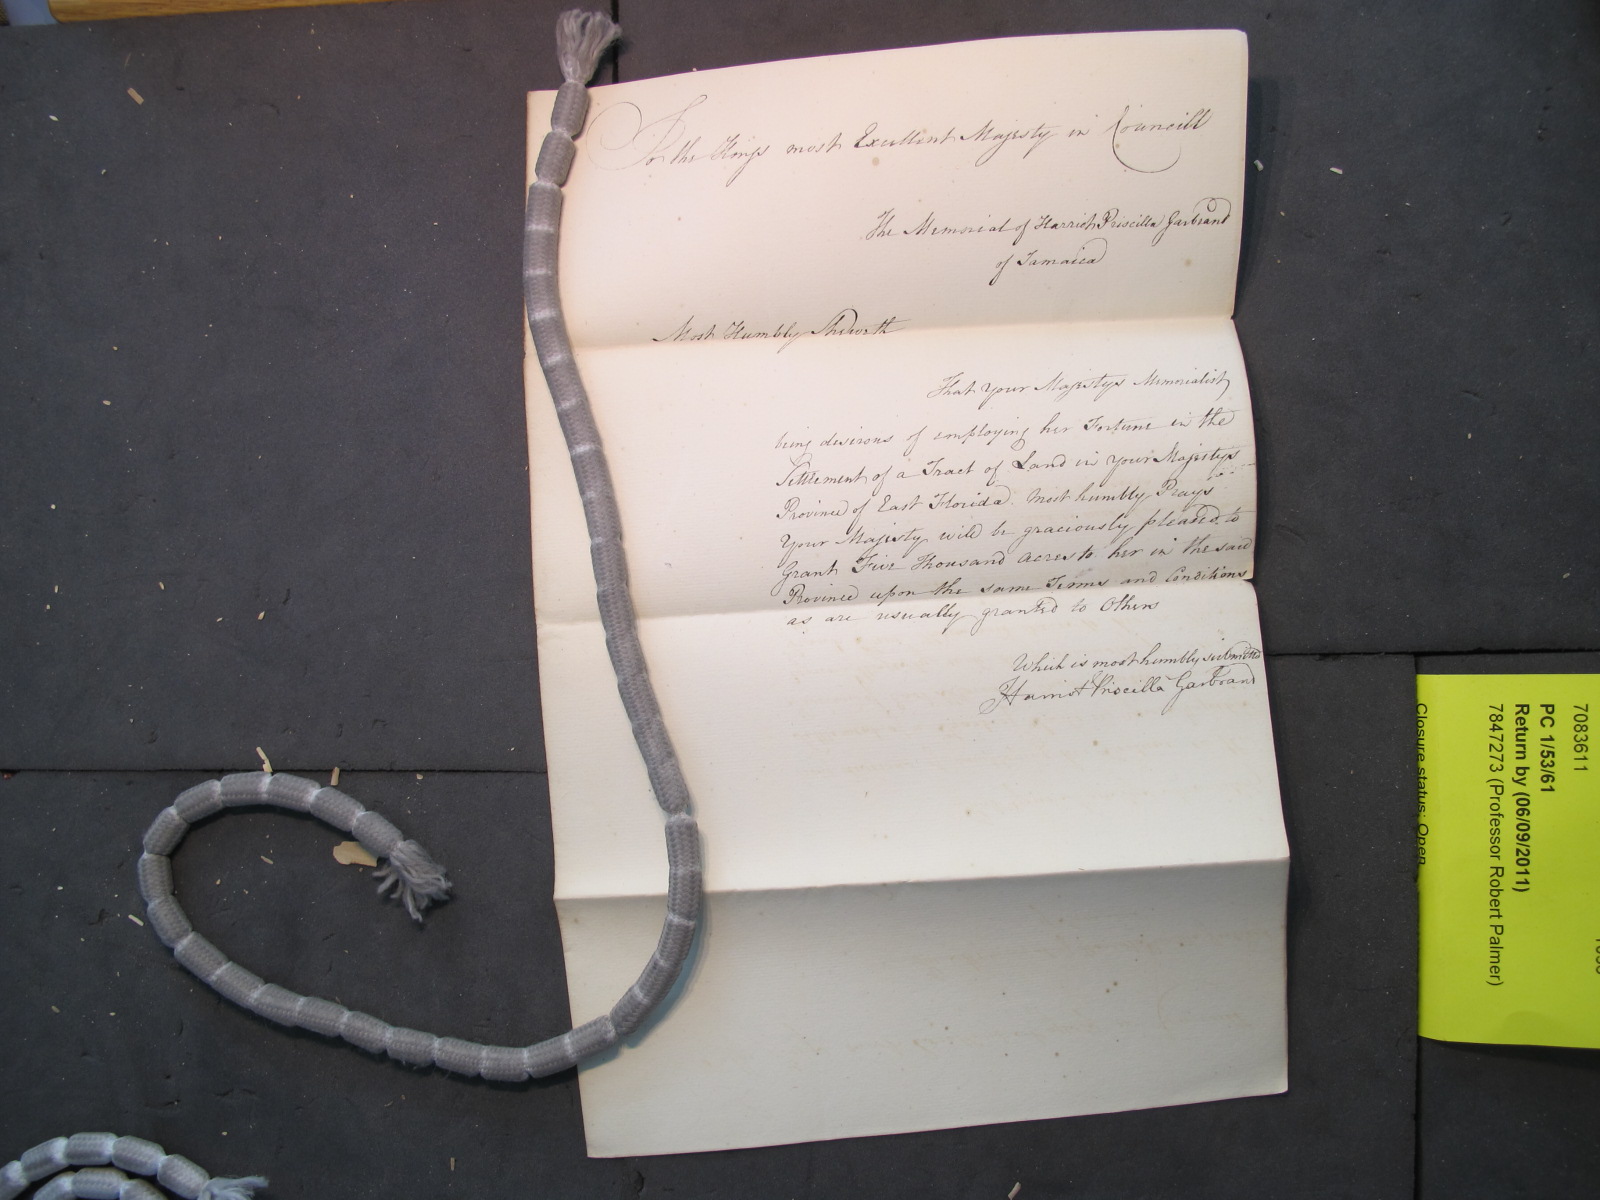 To the Kings most Excellent Majesty in Councill
The Memorial of Harriot Priscilla Garbrand
of Jamaica
Most Humbly Sheweth
That Your Majestys Memorialist
being desirous of employing her Fortune in the
Settlement of a Tract of Land in Your Majestys
Province of East Florida. Most humbly Prays
Your Majesty will be graciously pleased to
Grant Five Thousand acres to her in the said
Province upon the same Terms and Conditions
as are usually granted to Others
Which is most humbly submitted
Harriot Priscilla Garbrand
7083611
PC 1/53/61
Return by (06/09/2011)
7847273 (Professor Robert Palmer)
Closure status: Open